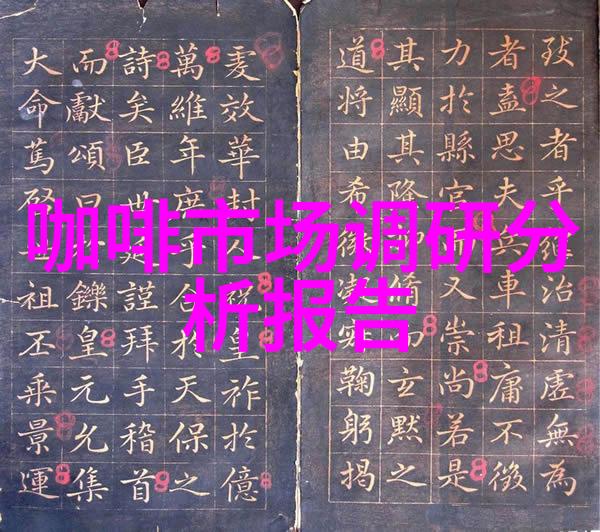 咖啡市场调研分
析报告
致之者乎治清虛無為
者盍思夫兵車租庸不徵
力於縣官而又崇尚若是
其顯其降脩玄默之
道將由希微鞠躬揭
效華封人祝皇祚於億
萬維年庶乎合於天保之
詩矣臣世謹拜手稽首
而獻頌曰鑠皇元允集
大命篤啓祖丕乘景運